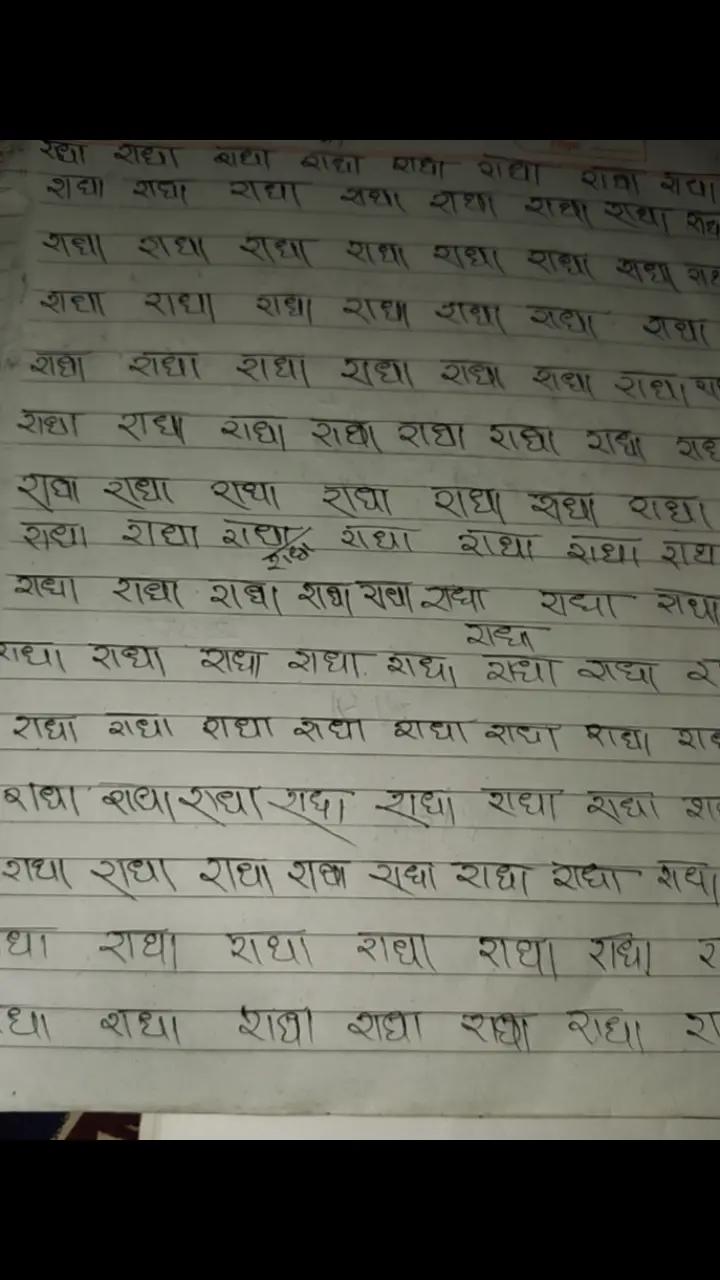 रधा राधा राधा राधा राधा राधा राधा राधा
राधा राधा राधा राधा राधा राधा राधा
राधा राधा राधा राधा राधा राधा राधा
राधा राधा राधा राधा राधा राधा राधा
राधा राधा राधा राधा राधा राधा राधा
राधा राधा राधा राधा राधा राधा राधा राध
राधा राधा राधा राधा राधा राधा राधा
राधा राधा राधा राधा राधा राधा राध
राधा
राधा राधा राधा राधा राधा राधा राधा राधा
राधा
राधा राधा राधा राधा राधा राधा राधा र
राधा राधा राधा राधा राधा राधा राधा रा
राधा राधा राधा राधा राधा राधा राधा रा
राधा राधा राधा राधा राधा राधा राधा राधा
धा राधा राधा राधा राधा राधा र
धा राधा राधा राधा राधा राधा रा